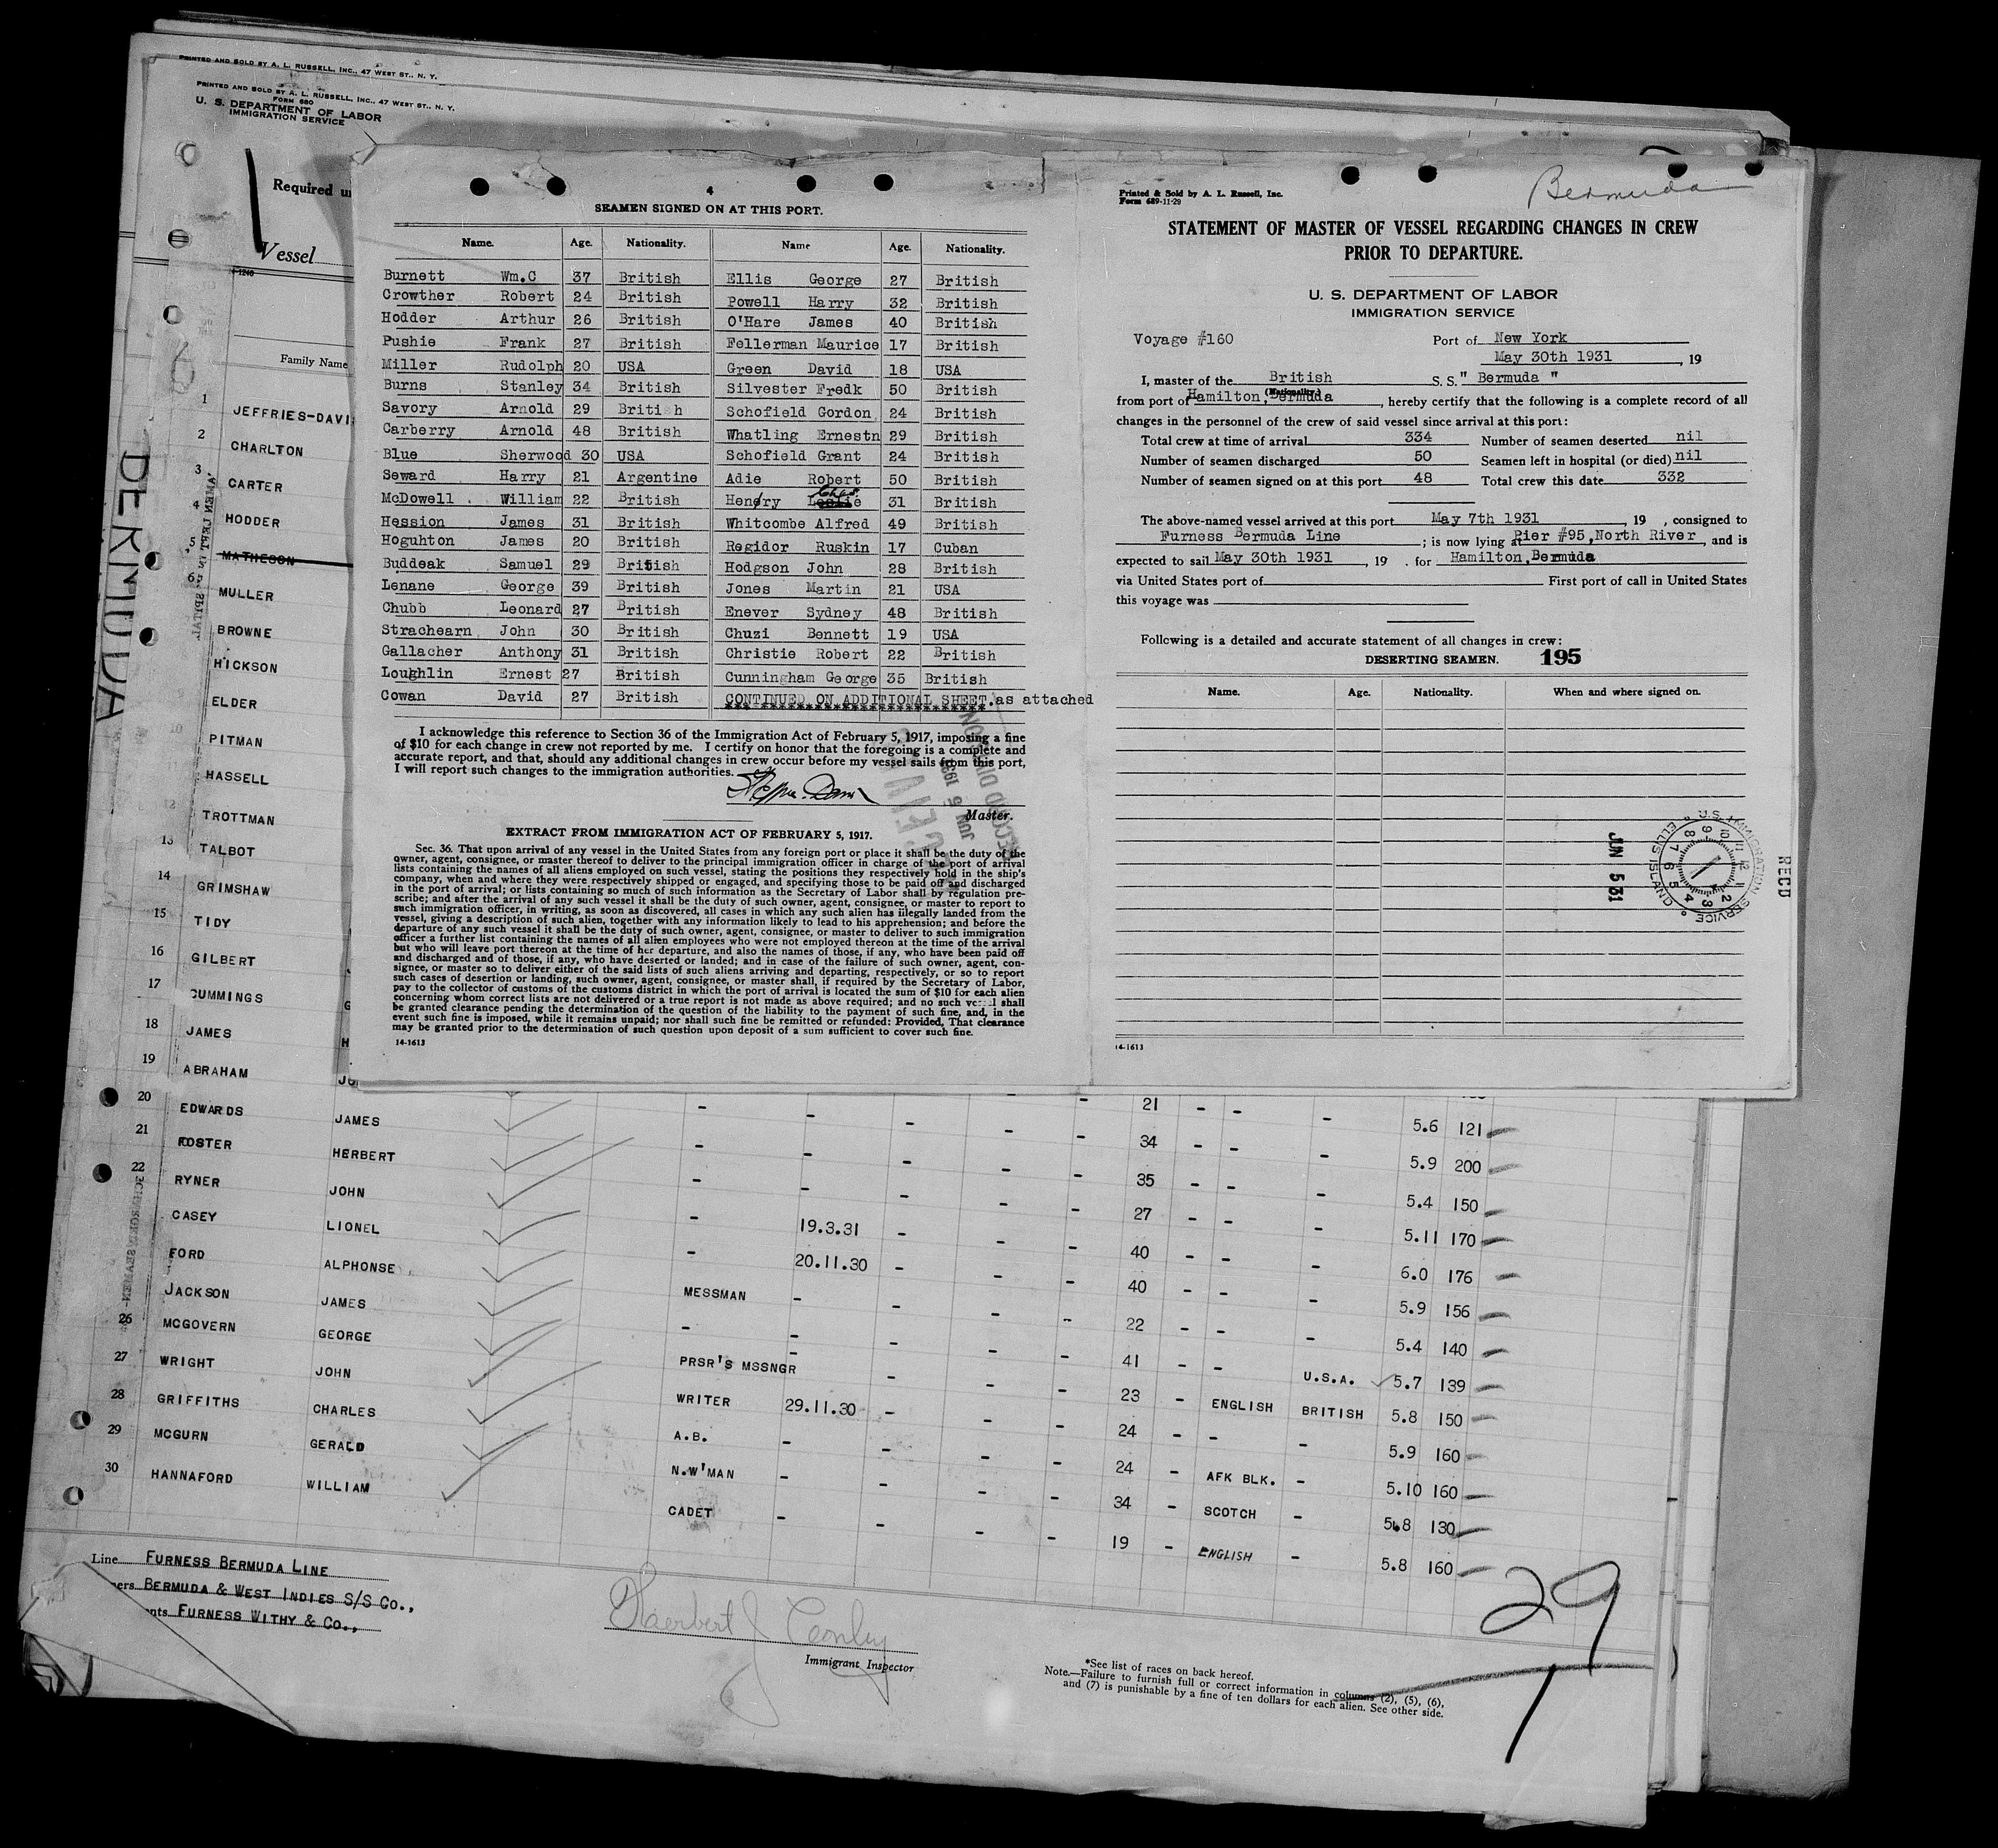 PRINTED AND SOLD BY A. L. RUSSELL, INC., 47 WEST ST., N. Y.
PRINTED AND SOLD BY A. L. RUSSELL, INC., 47 WEST ST., N. Y.
FORM 680
U. S. DEPARTMENT OF LABOR
IMMIGRATION SERVICE
Required
Vessel
Family Name
4
SEAMEN SIGNED ON AT THIS PORT.
Name. Age. Nationality. Name Age. Nationality.
Burnett Wm.C 37 British Ellis George 27 British
Crowther Robert 24 British Powell Harry 32 British
Hodder Arthur 26 British O'Hare James 40 British
Pushie Frank 27 British Fellerman Maurice 17 British
Miller Rudolph 20 USA Green David 18 USA
Burns Stanley 34 British Silvester Fredk 50 British
Savory Arnold 29 Briti h Schofield Gordon 24 British
Carberry Arnold 48 British Whatling Ernestn 29 British
Blue Sherwood 30 USA Schofield Grant 24 British
Seward Harry 21 Argentine Adie Robert 50 British
McDowell . William 22 British Henry Leslie Chas 31 British
Hession James 31 British Whitcombe Alfred 49 British
Hoguhton James 20 British Regidor Ruskin 17 Cuban
Buddeak Samuel 29 British Hodgson John 28 British
Lenane George 39 British Jones Martin 21 USA
Chubb Leonard 27 British Enever Sydney 48 British
Strachearn John 30 British Chuzi Bennett 19 USA
Gallacher Anthony 31 British Christie Robert 22 British
Loughlin Ernest 27 British Cunningham George 35 British
Cowan David 27 British CONTINUED ON ADDITIONAL SHEET.as attached
I acknowledge this reference to Section 36 of the Immigration Act of February 5, 1917, imposing a fine
of $10 for each change in crew not reported by me. I certify on honor that the foregoing is a complete and
accurate report, and that, should any additional changes in crew occur before my vessel sails from this port,
I will report such changes to the immigration authorities.
Master.
EXTRACT FROM IMMIGRATION ACT OF FEBRUARY 5, 1917.
Sec. 36. That upon arrival of any vessel in the United States from any foreign port or place it shall be the duty of the
owner, agent, consignee, or master thereof to deliver to the principal immigration officer in charge of the port of arrival
lists containing the names of all aliens employed on such vessel, stating the positions they respectively hold in the ship's
company, when and where they were respectively shipped or engaged, and specifying those to be paid off and discharged
in the port of arrival; or lists containing so much of such information as the Secretary of Labor shall by regulation pre-
scribe; and after the arrival of any such vessel it shall be the duty of such owner, agent, consignee, or master to report to
such immigration officer, in writing, as soon as discovered, all cases in which any such alien has illegally landed from the
vessel, giving a description of such alien, together with any information likely to lead to his apprehension; and before the
departure of any such vessel it shall be the duty of such owner, agent, consignee, or master to deliver to such immigration
officer a further list containing the names of all alien employees who were not employed thereon at the time of the arrival
but who will leave port thereon at the time of her departure, and also the names of those, if any, who have been paid off
and discharged and of those, if any, who have deserted or landed; and in case of the failure of such owner, agent, con-
signee, or master so to deliver either of the said lists of such aliens arriving and departing, respectively, or so to report
such cases of desertion or landing, such owner, agent, consignee, or master shall, if required by the Secretary of Labor,
pay to the collector of customs of the customs district in which the port of arrival is located the sum of $10 for each alien
concerning whom correct lists are not delivered or a true report is not made as above required; and no such vessel shall
be granted clearance pending the determination of the question of the liability to the payment of such fine, and, in the
event such fine is imposed, while it remains unpaid; nor shall such fine be remitted or refunded: Provided, That clearance
may be granted prior to the determination of such question upon deposit of a sum sufficient to cover such fine.
14-1613
Bermuda
Printed & Sold by A. L. Russell, Inc.
Form 689-11-29
STATEMENT OF MASTER OF VESSEL REGARDING CHANGES IN CREW
PRIOR TO DEPARTURE.
U. S. DEPARTMENT OF LABOR
IMMIGRATION SERVICE
Voyage #160 Port of New York
May 30th 1931 , 19
I, master of the British S. S. " Bermuda "
(Nationality.)
from port of Hamilton,Bermuda , hereby certify that the following is a complete record of all
changes in the personnel of the crew of said vessel since arrival at this port:
Total crew at time of arrival 334 Number of seamen deserted nil
Number of seamen discharged 50 Seamen left in hospital (or died) nil
Number of seamen signed on at this port 48 Total crew this date 332
The above-named vessel arrived at this port May 7th 1931 , 19 , consigned to
Furness Bermuda Line ; is now lying at Pier #95,North River , and is
expected to sail May 30th 1931 , 19 . for Hamilton,Bermuda
via United States port of First port of call in United States
this voyage was
Following is a detailed and accurate statement of all changes in crew:
DESERTING SEAMEN. 195
Name. Age. Nationality. When and where signed on.
U.S. IMMIGRATION SERVICE
ELLIS ISLAND
JUN 5 31
RECD
14-1613
BERMUDA
1 JEFFRIES-DAVI
2 CHARLTON
3 CARTER
4 HODDER
5 MATHESON
6 MULLER
BROWNE
HICKSON
ELDER
10 PITMAN
HASSELL
12 TROTTMAN
13 TALBOT
14 GRIMSHAW
15 TIDY
16 GILBERT
17 CUMMINGS
18 JAMES
19 ABRAHAM
20 EDWARDS JAMES - - - - - 21 - - - 5.6 121
21 FOSTER HERBERT - - - - - 34 - - - 5.9 200
22 RYNER JOHN - - - - - 35 - - - 5.4 150
CASEY LIONEL - 19.3.31 - - - 27 - - - 5.11 170
FORD ALPHONSE - 20.11.30 - - - 40 - - - 6.0 176
JACKSON JAMES MESSMAN - - - - 40 - - - 5.9 156
26 MCGOVERN GEORGE - - - - - 22 - - - 5.4 140
27 WRIGHT JOHN PRSR'S MSSNGR - - - - 41 - - U.S.A. 5.7 139
28 GRIFFITHS CHARLES WRITER 29.11.30 - - - 23 - ENGLISH BRITISH 5.8 150
29 MCGURN GERALD A.B. - - - - 24 - - - 5.9 160
30 HANNAFORD WILLIAM N.W'MAN - - - - 24 - AFK BLK. - 5.10 160
CADET - - - - 34 - SCOTCH - 5.8 130
19 - ENGLISH - 5.8 160
Line FURNESS BERMUDA LINE
ners BERMUDA & WEST INDIES S/S CO.,
nts FURNESS WITHY & CO.,
Herbert J Conley
Immigrant Inspector
*See list of races on back hereof.
Note.—Failure to furnish full or correct information in columns (2), (5), (6),
and (7) is punishable by a fine of ten dollars for each alien. See other side.
29
1